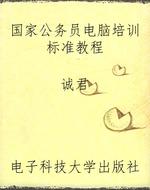 国家公务员电脑培训
标准教程
诚君
电子科技大学出版社